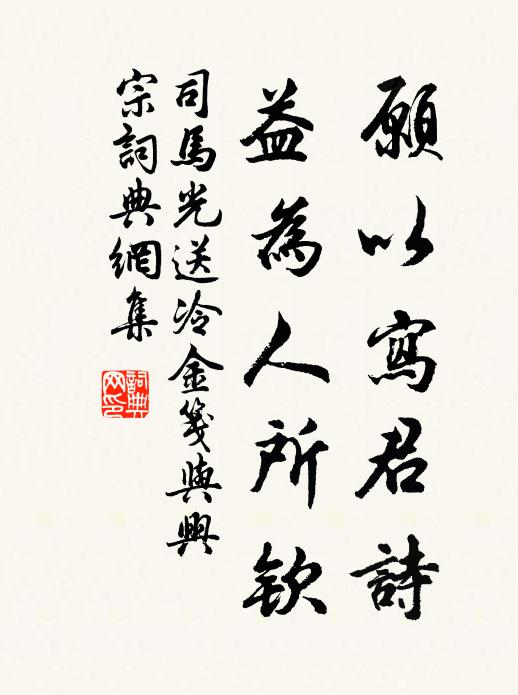 願以寫君詩
益為人所欽
司馬光送冷金箋與興
宗詞典網集
詞典
网印